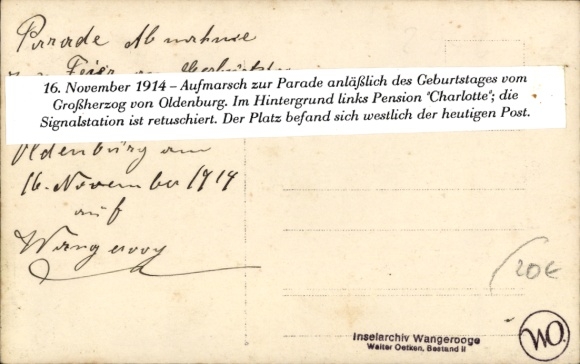 Parade Abnahme
zur Feier
16. November 1914 – Aufmarsch zur Parade anläßlich des Geburtstages vom
Großherzog von Oldenburg. Im Hintergrund links Pension "Charlotte"; die
Signalstation ist retuschiert. Der Platz befand sich westlich der heutigen Post.
Oldenburg am
16. November 1914
auf
Wangeroog
20€
Inselarchiv Wangerooge
Walter Oetken, Bestand II
WO.